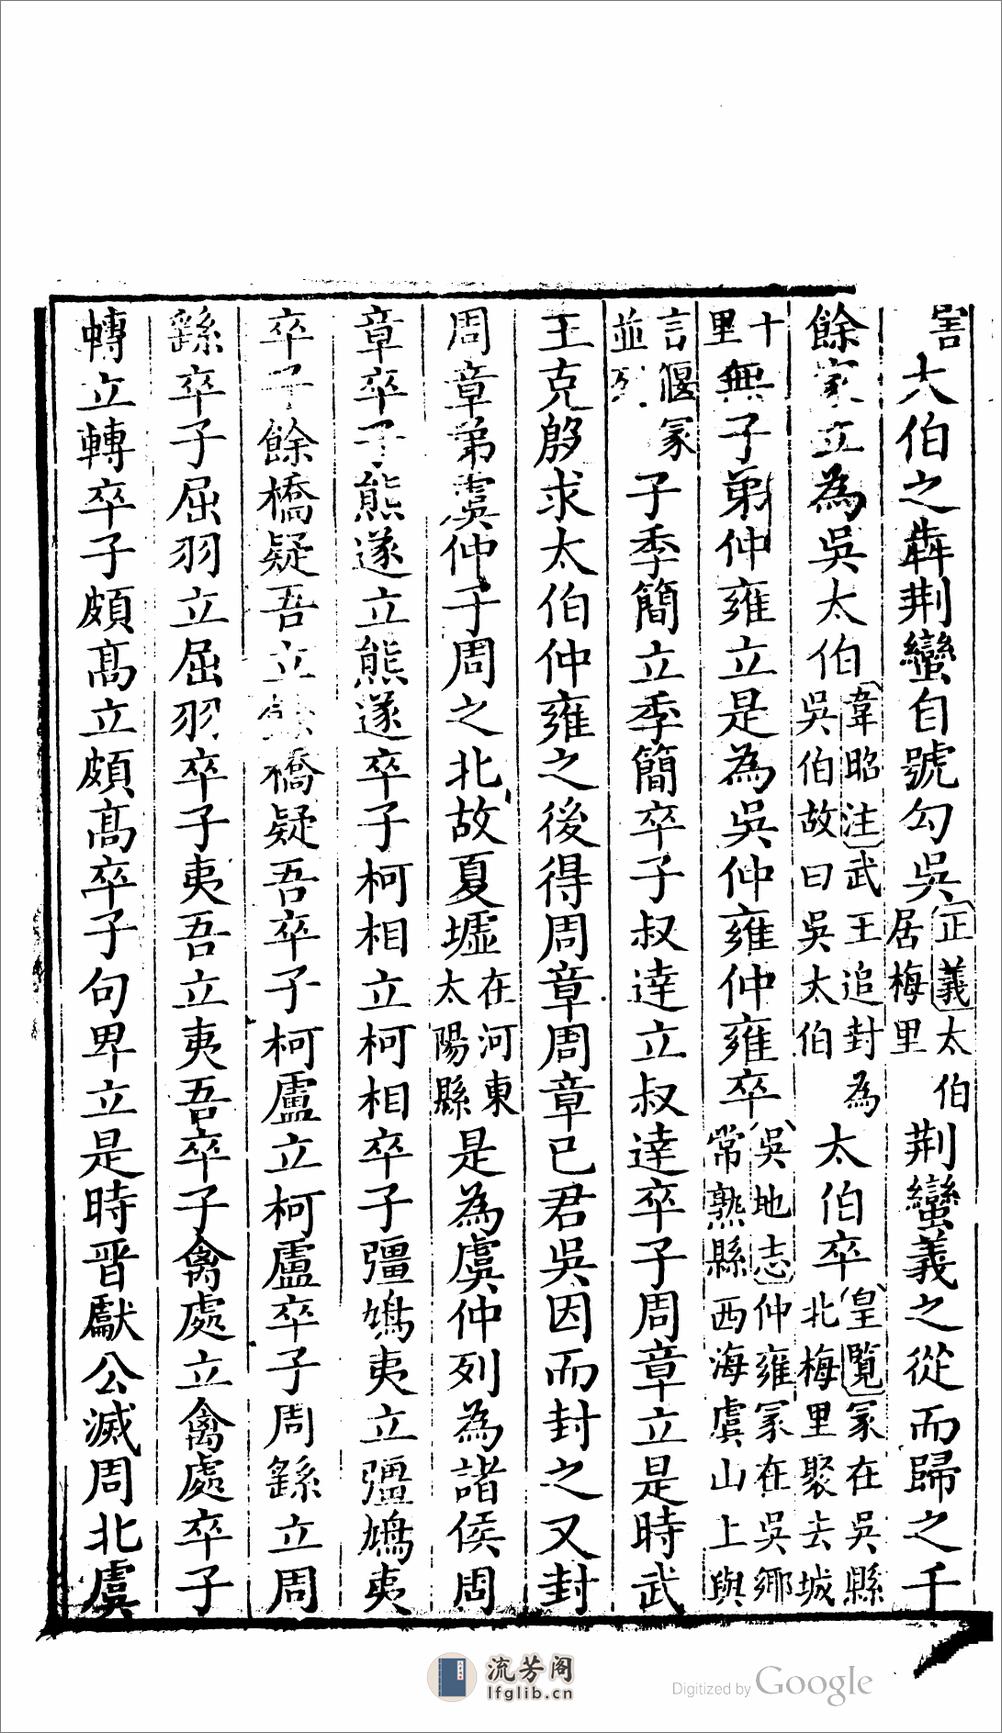 大伯之犇荆蠻自號勾吳正義太伯居梅里荆蠻義之從而歸之千
餘家立為吳太伯韋昭注武王追封為吳伯故曰吳太伯太伯卒皇覽冢在吳縣北梅里聚去城
十里無子弟仲雍立是為吳仲雍仲雍卒吳地志仲雍冢在吳鄉常熟縣西海虞山上與
言偃冢並列子季簡立季簡卒子叔逹立叔逹卒子周章立是時武
王克殷求太伯仲雍之後得周章周章已君吳因而封之又封
周章弟虞仲于周之北故夏墟在河東太陽縣是為虞仲列為諸侯周
章卒子熊遂立熊遂卒子柯相立柯相卒子彊鳩夷立彊鳩夷
卒子餘橋疑吾立餘橋疑吾卒子柯盧立柯盧卒子周繇立周
繇卒子屈羽立屈羽卒子夷吾立夷吾卒子禽處立禽處卒子
轉立轉卒子頗髙立頗髙卒子句卑立是時晋獻公滅周北虞
流芳阁
lfglib.cn
Digitized by Google